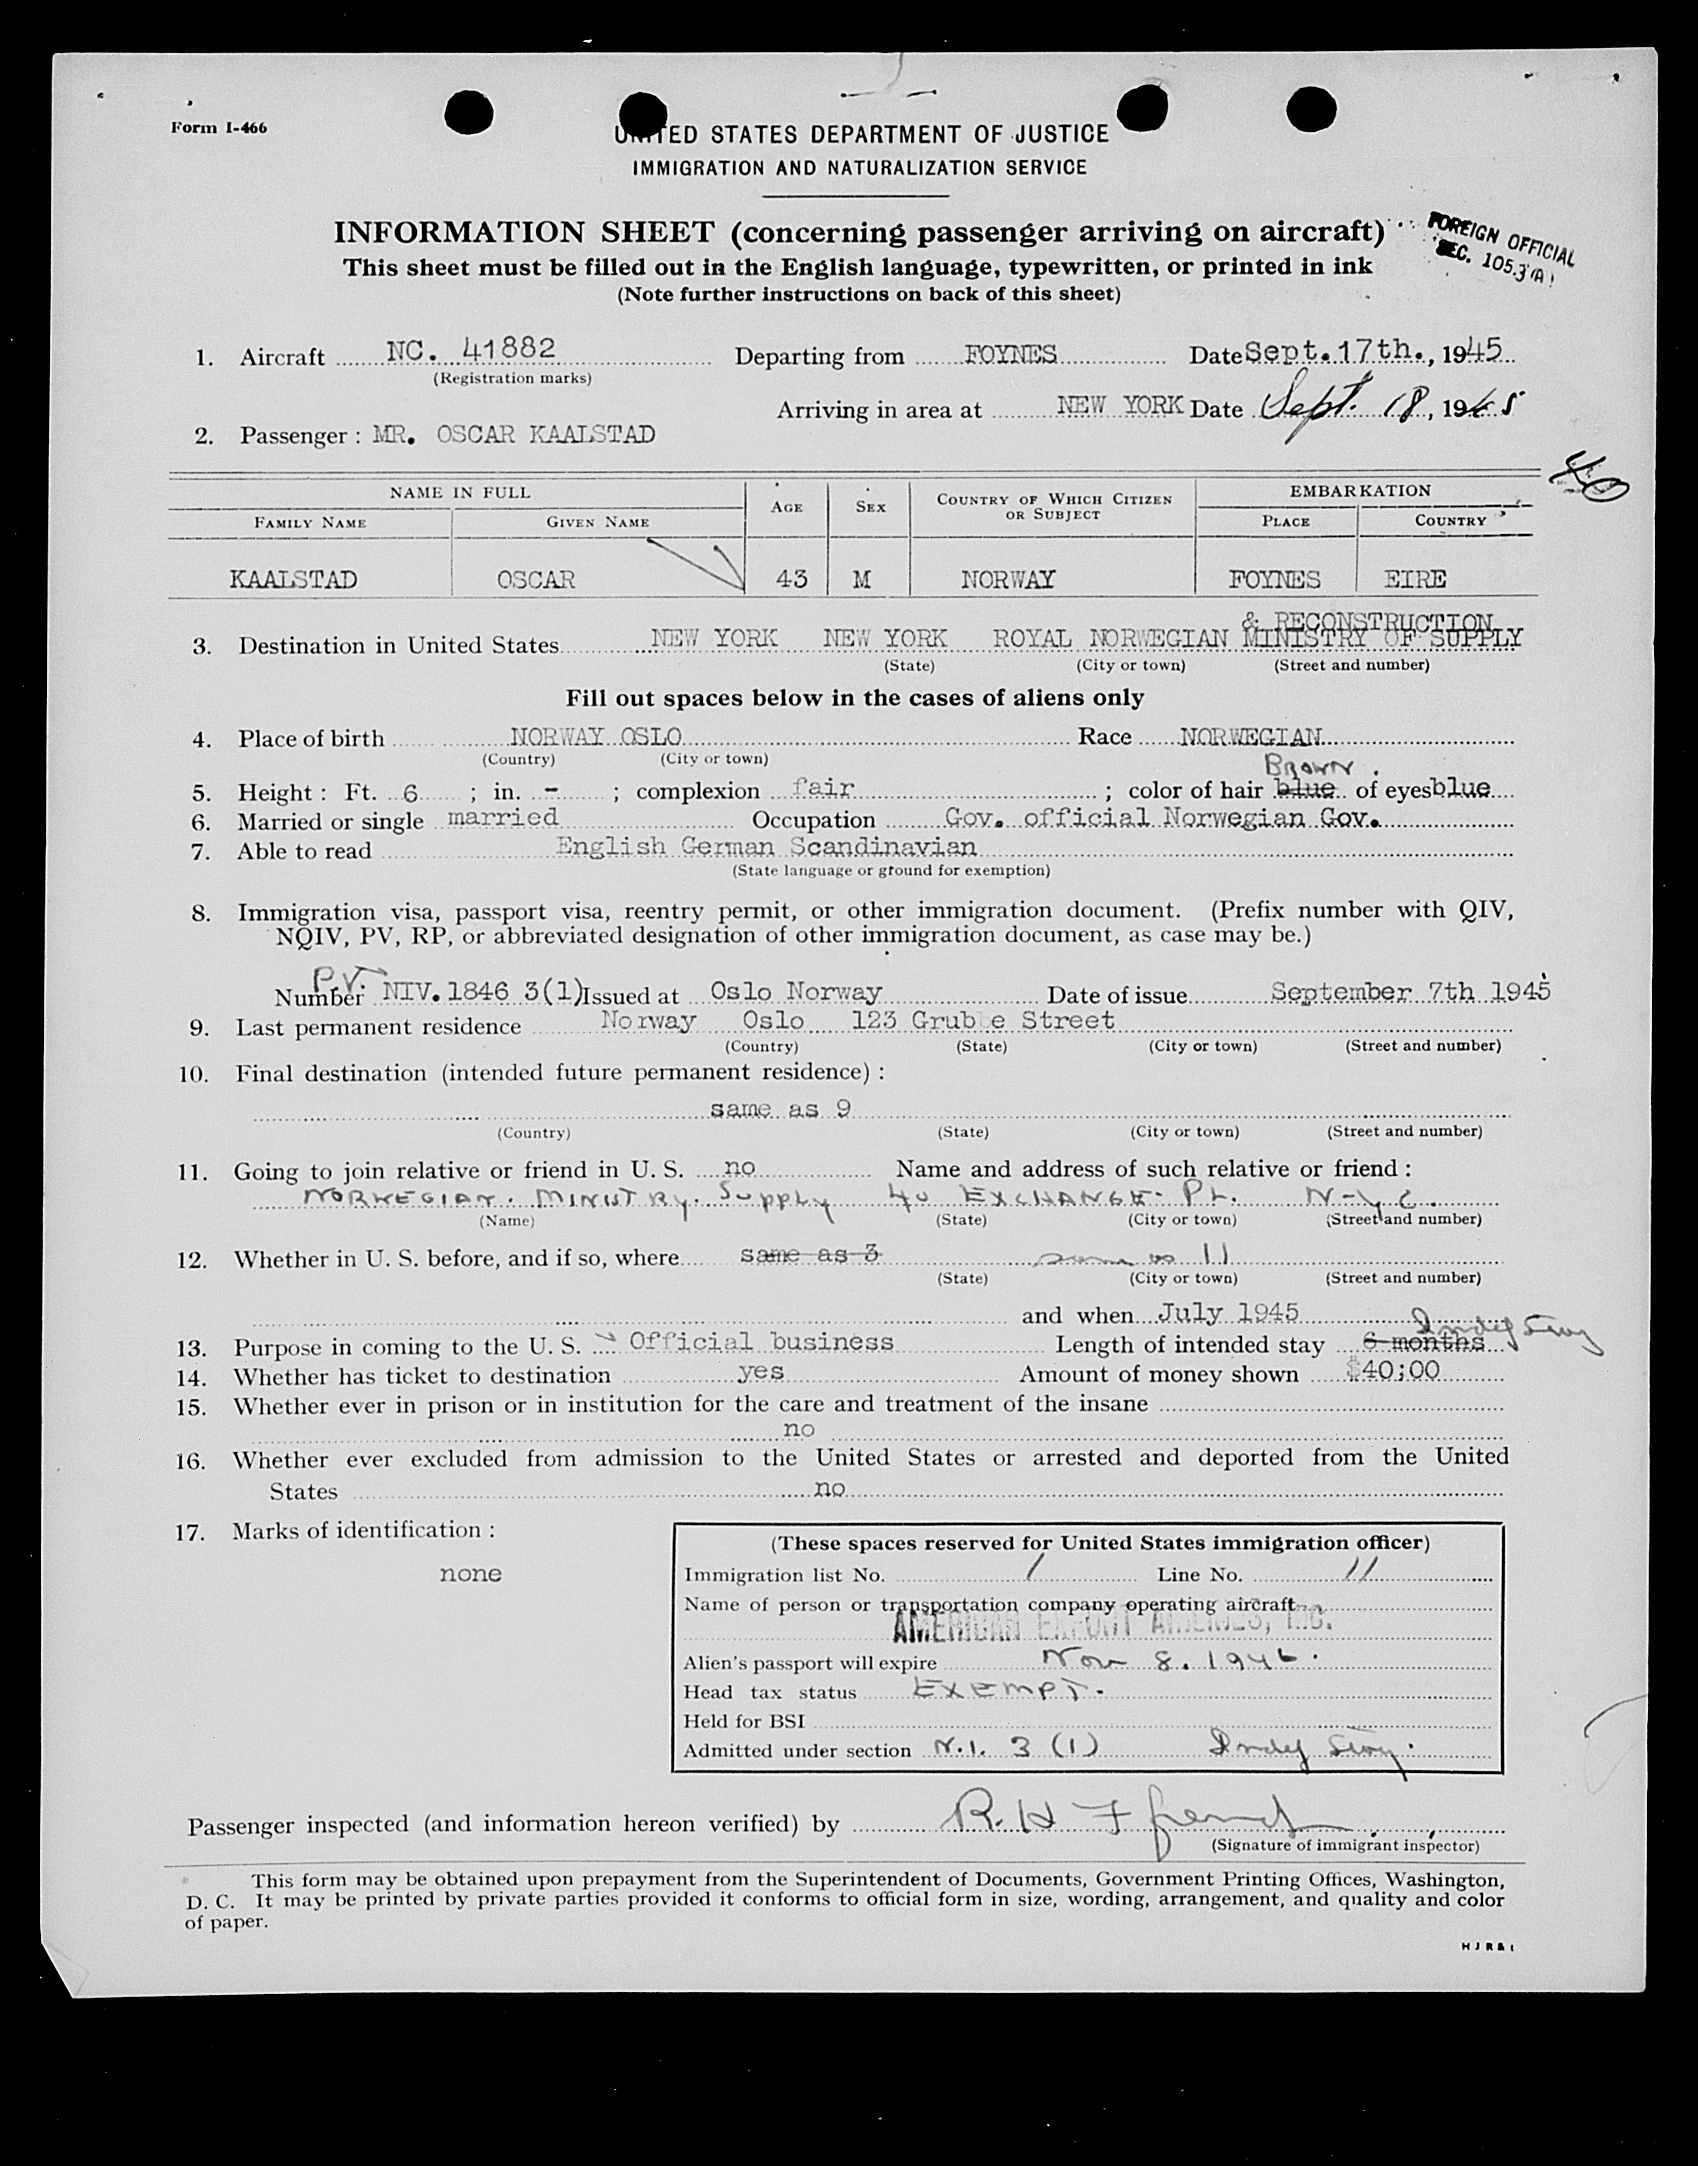 Form I-466
UNITED STATES DEPARTMENT OF JUSTICE
IMMIGRATION AND NATURALIZATION SERVICE
INFORMATION SHEET (concerning passenger arriving on aircraft)
FOREIGN OFFICIAL
SEC. 105.3(A)
This sheet must be filled out in the English language, typewritten, or printed in ink
(Note further instructions on back of this sheet)
1. Aircraft NC. 41882 Departing from FOYNES Date Sept. 17th., 1945
(Registration marks)
Arriving in area at NEW YORK Date Sept. 18, 1945
2. Passenger: MR. OSCAR KAALSTAD
40
NAME IN FULL AGE SEX COUNTRY OF WHICH CITIZEN OR SUBJECT EMBARKATION
FAMILY NAME GIVEN NAME PLACE COUNTRY
KAALSTAD OSCAR 43 M NORWAY FOYNES EIRE
& RECONSTRUCTION
3. Destination in United States NEW YORK NEW YORK ROYAL NORWEGIAN MINISTRY OF SUPPLY
(State) (City or town) (Street and number)
Fill out spaces below in the cases of aliens only
4. Place of birth NORWAY OSLO Race NORWEGIAN
(Country) (City or town)
Brown
5. Height: Ft. 6; in. -; complexion fair; color of hair blue of eyes blue
6. Married or single married Occupation Gov. official Norwegian Gov.
7. Able to read English German Scandinavian
(State language or ground for exemption)
8. Immigration visa, passport visa, reentry permit, or other immigration document. (Prefix number with QIV,
NQIV, PV, RP, or abbreviated designation of other immigration document, as case may be.)
P.V.
Number NIV. 1846 3(1) Issued at Oslo Norway Date of issue September 7th 1945
9. Last permanent residence Norway Oslo 123 Grub e Street
(Country) (State) (City or town) (Street and number)
10. Final destination (intended future permanent residence):
same as 9
(Country) (State) (City or town) (Street and number)
11. Going to join relative or friend in U. S. no Name and address of such relative or friend:
NORWEGIAN. MINISTRY. Supply 40 EXCHANGE PL. N-Y C.
(Name) (State) (City or town) (Street and number)
12. Whether in U. S. before, and if so, where same as 3 same as 11
(State) (City or town) (Street and number)
and when July 1945
Indef Stay
13. Purpose in coming to the U. S. Official business Length of intended stay 6 months
14. Whether has ticket to destination yes Amount of money shown $40;00
15. Whether ever in prison or in institution for the care and treatment of the insane
no
16. Whether ever excluded from admission to the United States or arrested and deported from the United
States no
17. Marks of identification:
none
(These spaces reserved for United States immigration officer)
Immigration list No. 1 Line No. 11
Name of person or transportation company operating aircraft
AMERICAN EXPORT AIRLINES, INC.
Alien's passport will expire Nov 8. 1946.
Head tax status EXEMPT.
Held for BSI
Admitted under section N.I. 3 (1) Indef Stay.
Passenger inspected (and information hereon verified) by R. H.
(Signature of immigrant inspector)
This form may be obtained upon prepayment from the Superintendent of Documents, Government Printing Offices, Washington,
D. C. It may be printed by private parties provided it conforms to official form in size, wording, arrangement, and quality and color
of paper.
H J R & I